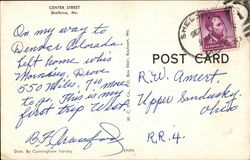 CENTER STREET
Shelbina, Mo.
On my way to
Denver Colorado.
Left home this
Morning. Drove
550 Miles. 700 more
to go. This is my
first trip West.
B.F. Crawford
Dist. By Cunningham Variety
POST CARD
R.W. Amert.
Upper Sandusky,
Ohio
R.R.4.